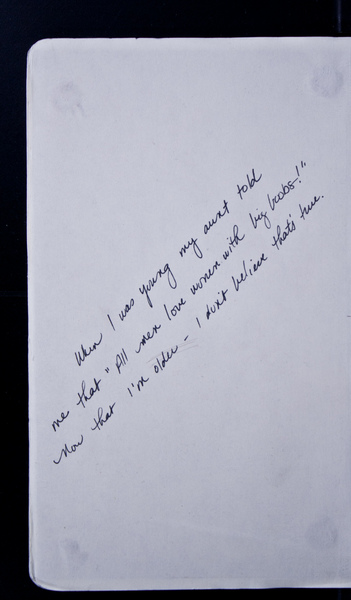 When I was young my aunt told
me that "All men love women with big boobs!".
Now that I'm older - I don't believe that's true.